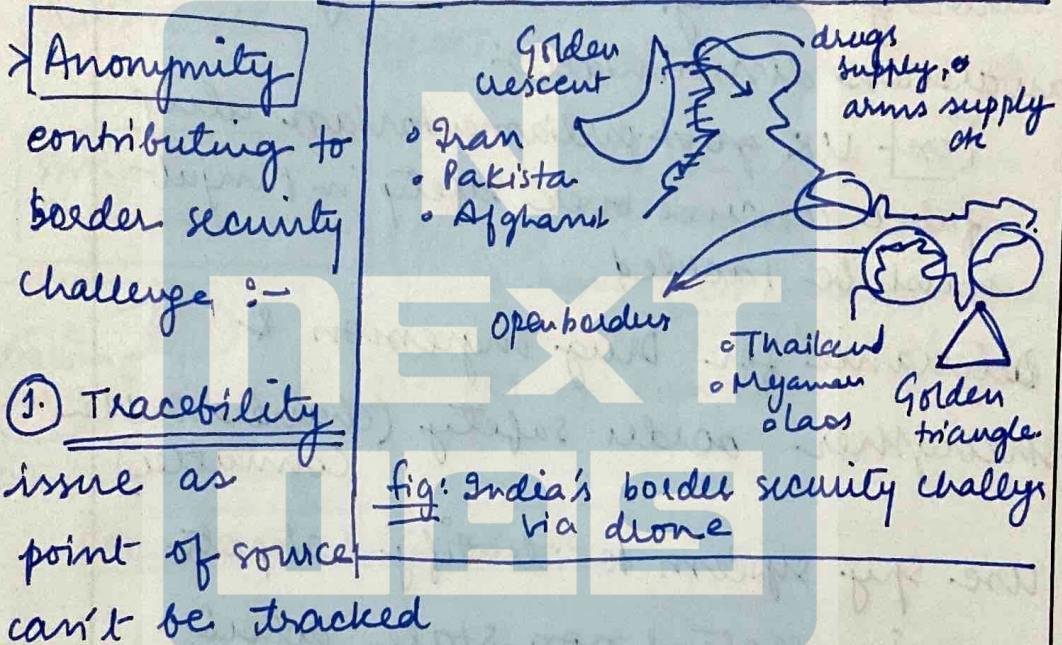 > Anonymity
contributing to
border security
challenge :-
① Tracebility
issue as
point of source
can't be tracked
Golden
crescent
• Iran
• Pakista
• Afghanis
drugs
supply,
arms supply
etc
open borders
• Thailand
• Myanmar
• Laos
Golden
triangle
fig: India's border security challegs
via drone
NEXT
IAS